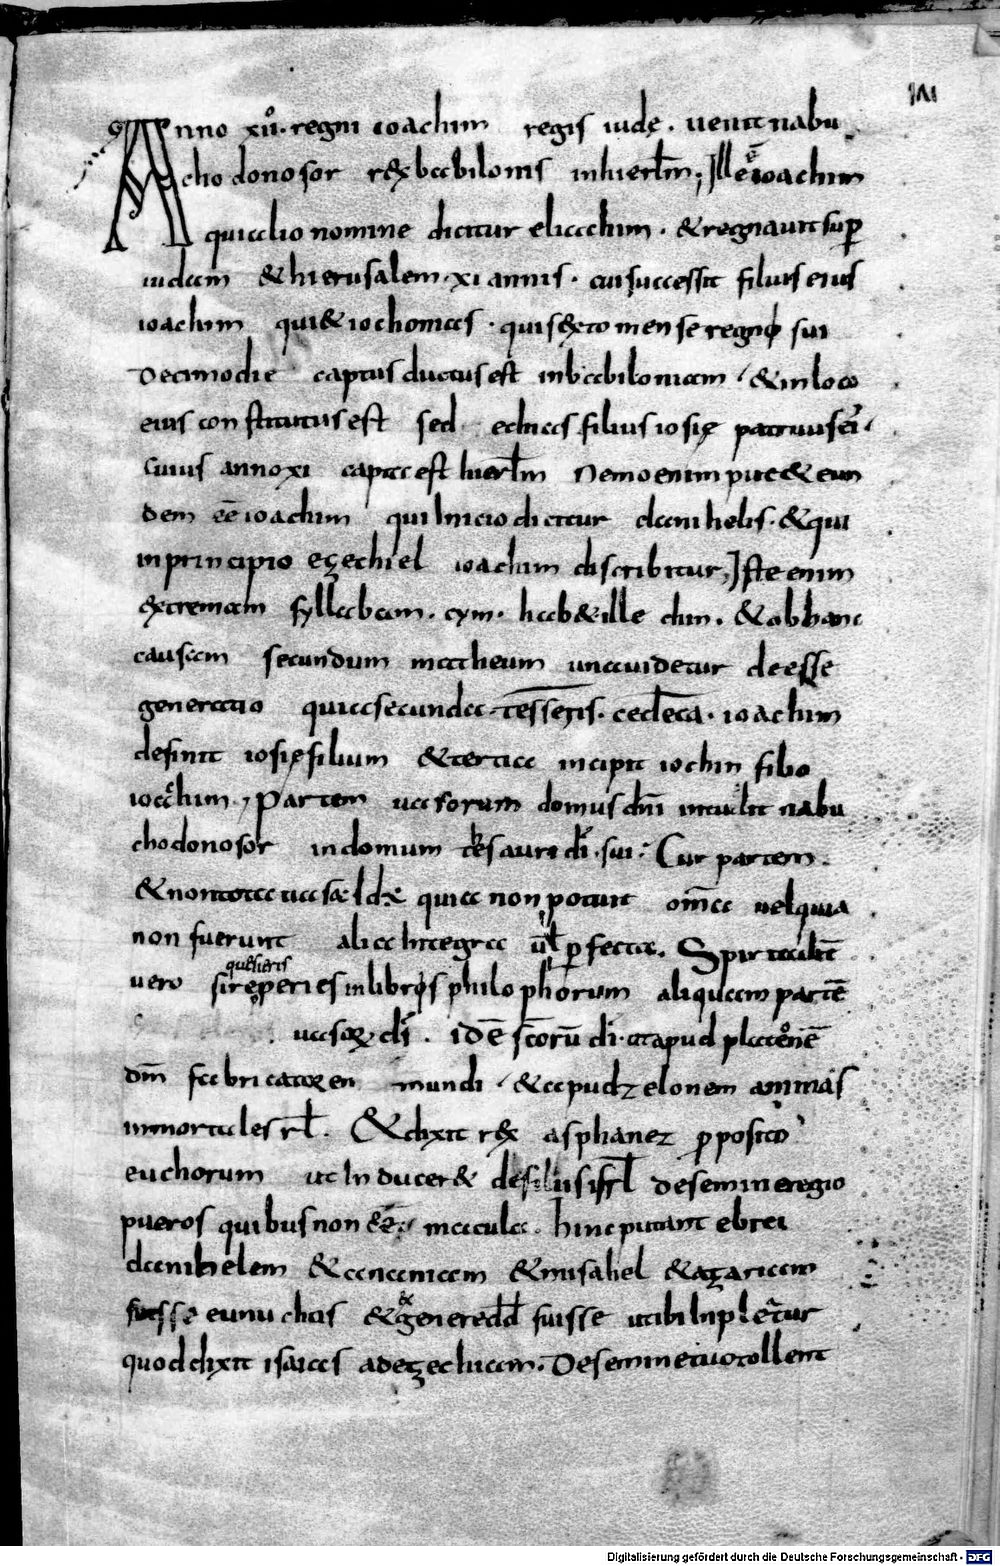 IIII
Anno xii̊· regni ioachim regis iudę . uenit nabu
chodonosor rex babilonis inhierłm; Ille ē ioachim
quialio nomine dicitur eliachim . & regnauit suꝑ
iudam & hierusalem · xi annis · cui successit filius eius
ioachim qui & iochonias · qui sexto mense regni sui
decimo die captus ductus est inbabiloniam & inloco
eius constitutus est sedechias filius iosię patruus ei
cuius anno xi capta est hierłm Nemo enim put& eun
dem eē ioachim qui Inicio dicitur danihelis · & qui
inprincipio ezechiel ioachim discribitur; Iste enim
extremam syllabam . cym . hab& ille chim . & ob hanc
causam secundum matheum una uidetur deesse
generatio quia secunda tesseris cedeca · ioachim
definit iosię filium & tertia incipit iochin filio
ioachim , Partem uasorum domus dn̄i intulit nabu
chodonosor indomum thesauri di · sui : Cur partem .
& non tota uasa quia non potuit om̄a uel quia
non fuerunt alia Integra uł ꝑfecta . Spiritalit̄
uero si quesieris reperies inlibros philophorum aliquam partē
uasoꝝ di . idē sc̄orū di · ut apud platonē
dm̄ fabricatorem mundi & apud zelonem animas
inmortales rł . & dixit rex asphanez p̱posito
euchorum ut Induceret de filiis isrł de semine regio
pueros quibus non eē macula . hinc putant ebrei
danihelem & ananiam & misahel & azariam
fuisse eunuchos & ex genere dd̄ fuisse ut ibi Inpleatur
quod dixit isaias ad ezechiam . De semine tuo tollent
Digitalisierung gefördert durch die Deutsche Forschungsgemeinschaft - DFG